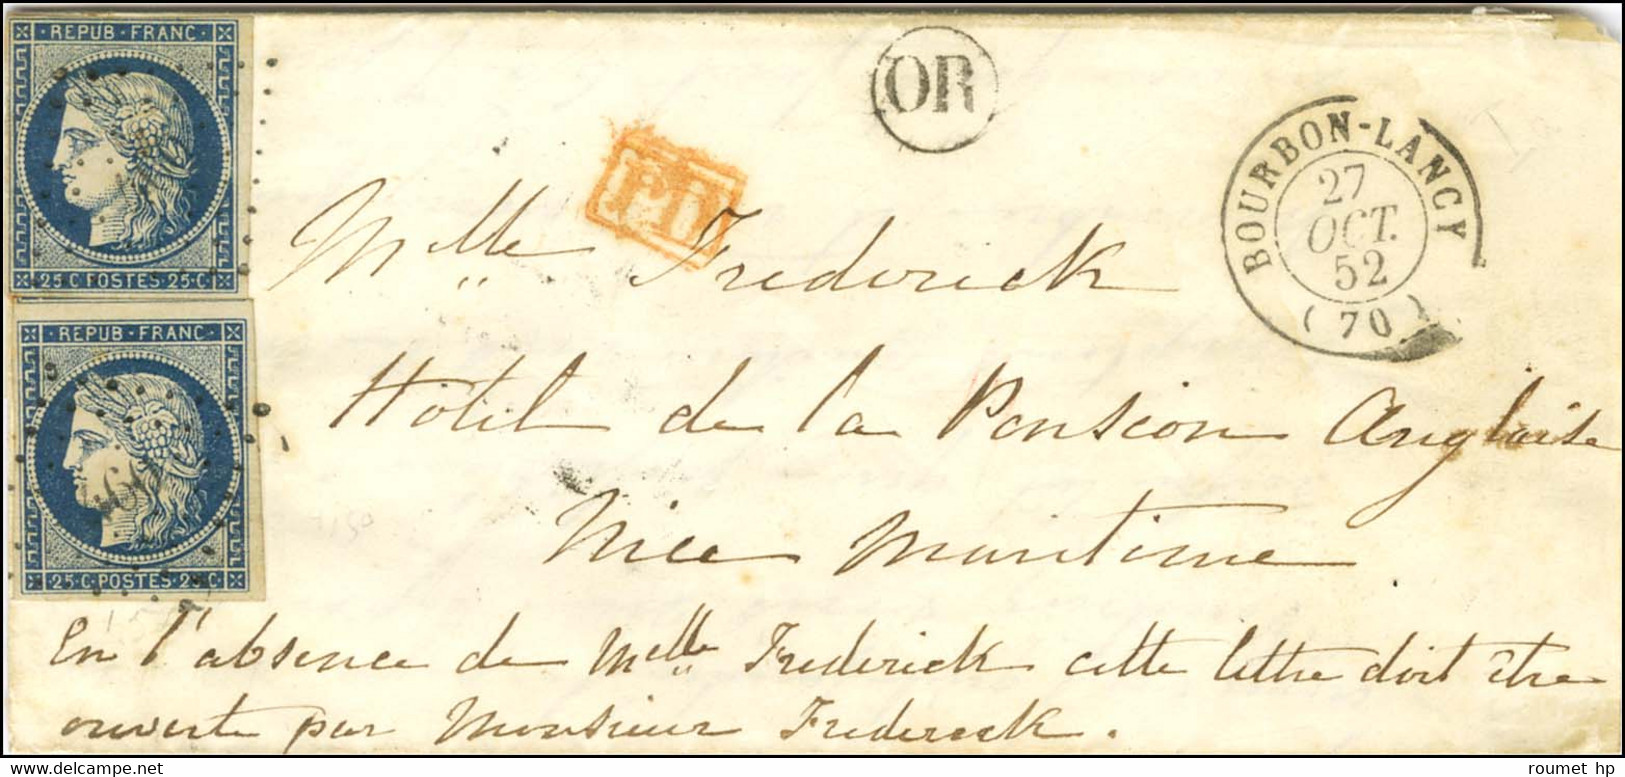 REPUB · FRANC ·
25·C·POSTES·25·C
REPUB · FRANC ·
25·C·POSTES·25·C
460
PD
OR
BOURBON-LANCY
27
OCT.
52
(70)
Mlle Frederick
Hôtel de la Pension Anglaise
Nice Maritime
En l'absence de Mlle Frederick cette lettre doit être
ouverte par Monsieur Frederick.
roumet hp
delcampe.net